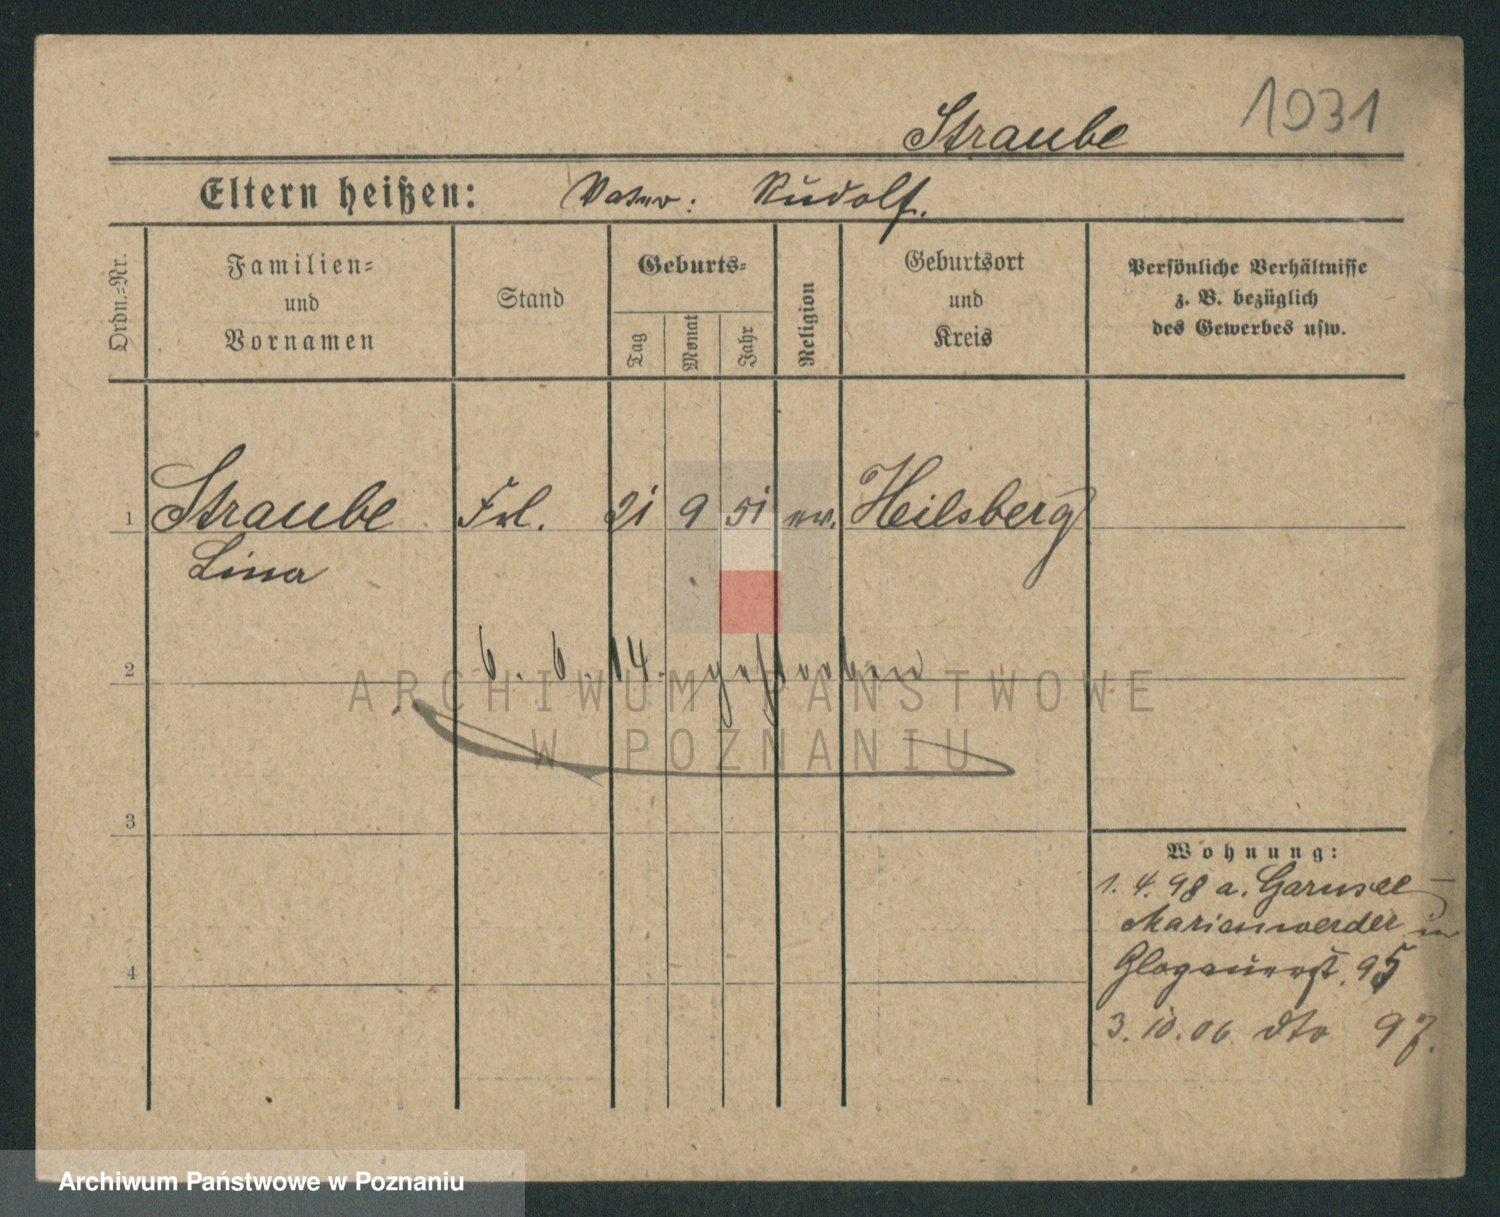 1031
Straube
Eltern heißen: Vater: Rudolf.
Ordn.-Nr.
Familien-
und
Vornamen
Stand
Geburts-
Tag
Monat
Jahr
Religion
Geburtsort
und
Kreis
Persönliche Verhältnisse
z. B. bezüglich
des Gewerbes usw.
1 Straube Frl. 21 9 51 ev. Heilsberg
Lina
2 6. 6. 14. gestorben
ARCHIWUM PAŃSTWOWE
W POZNANIU
3
Wohnung:
1. 4. 98 a.
Marienwerder in
Glogauerst. 95
4
3. 10. 06 dto 97.
Archiwum Państwowe w Poznaniu